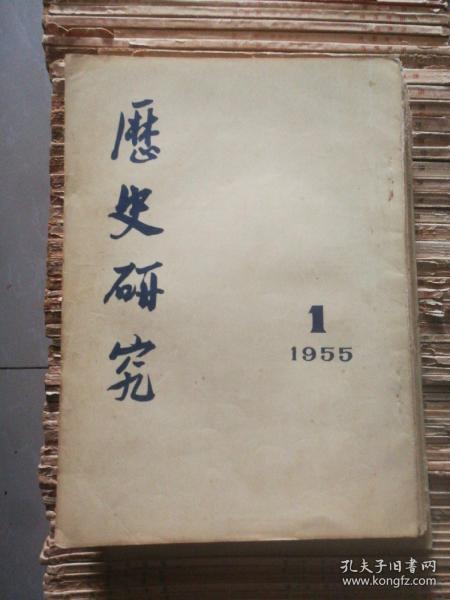 歷史研究
1
1955
孔夫子旧书网
www.kongfz.com